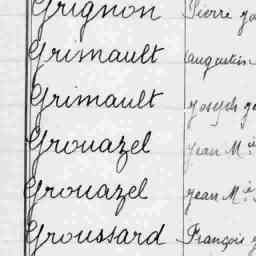 Grignon Pierre
Grimault augustin
Grimault joseph
Grouazel jean M.ie
Grouazel jean M.ie
Groussard François